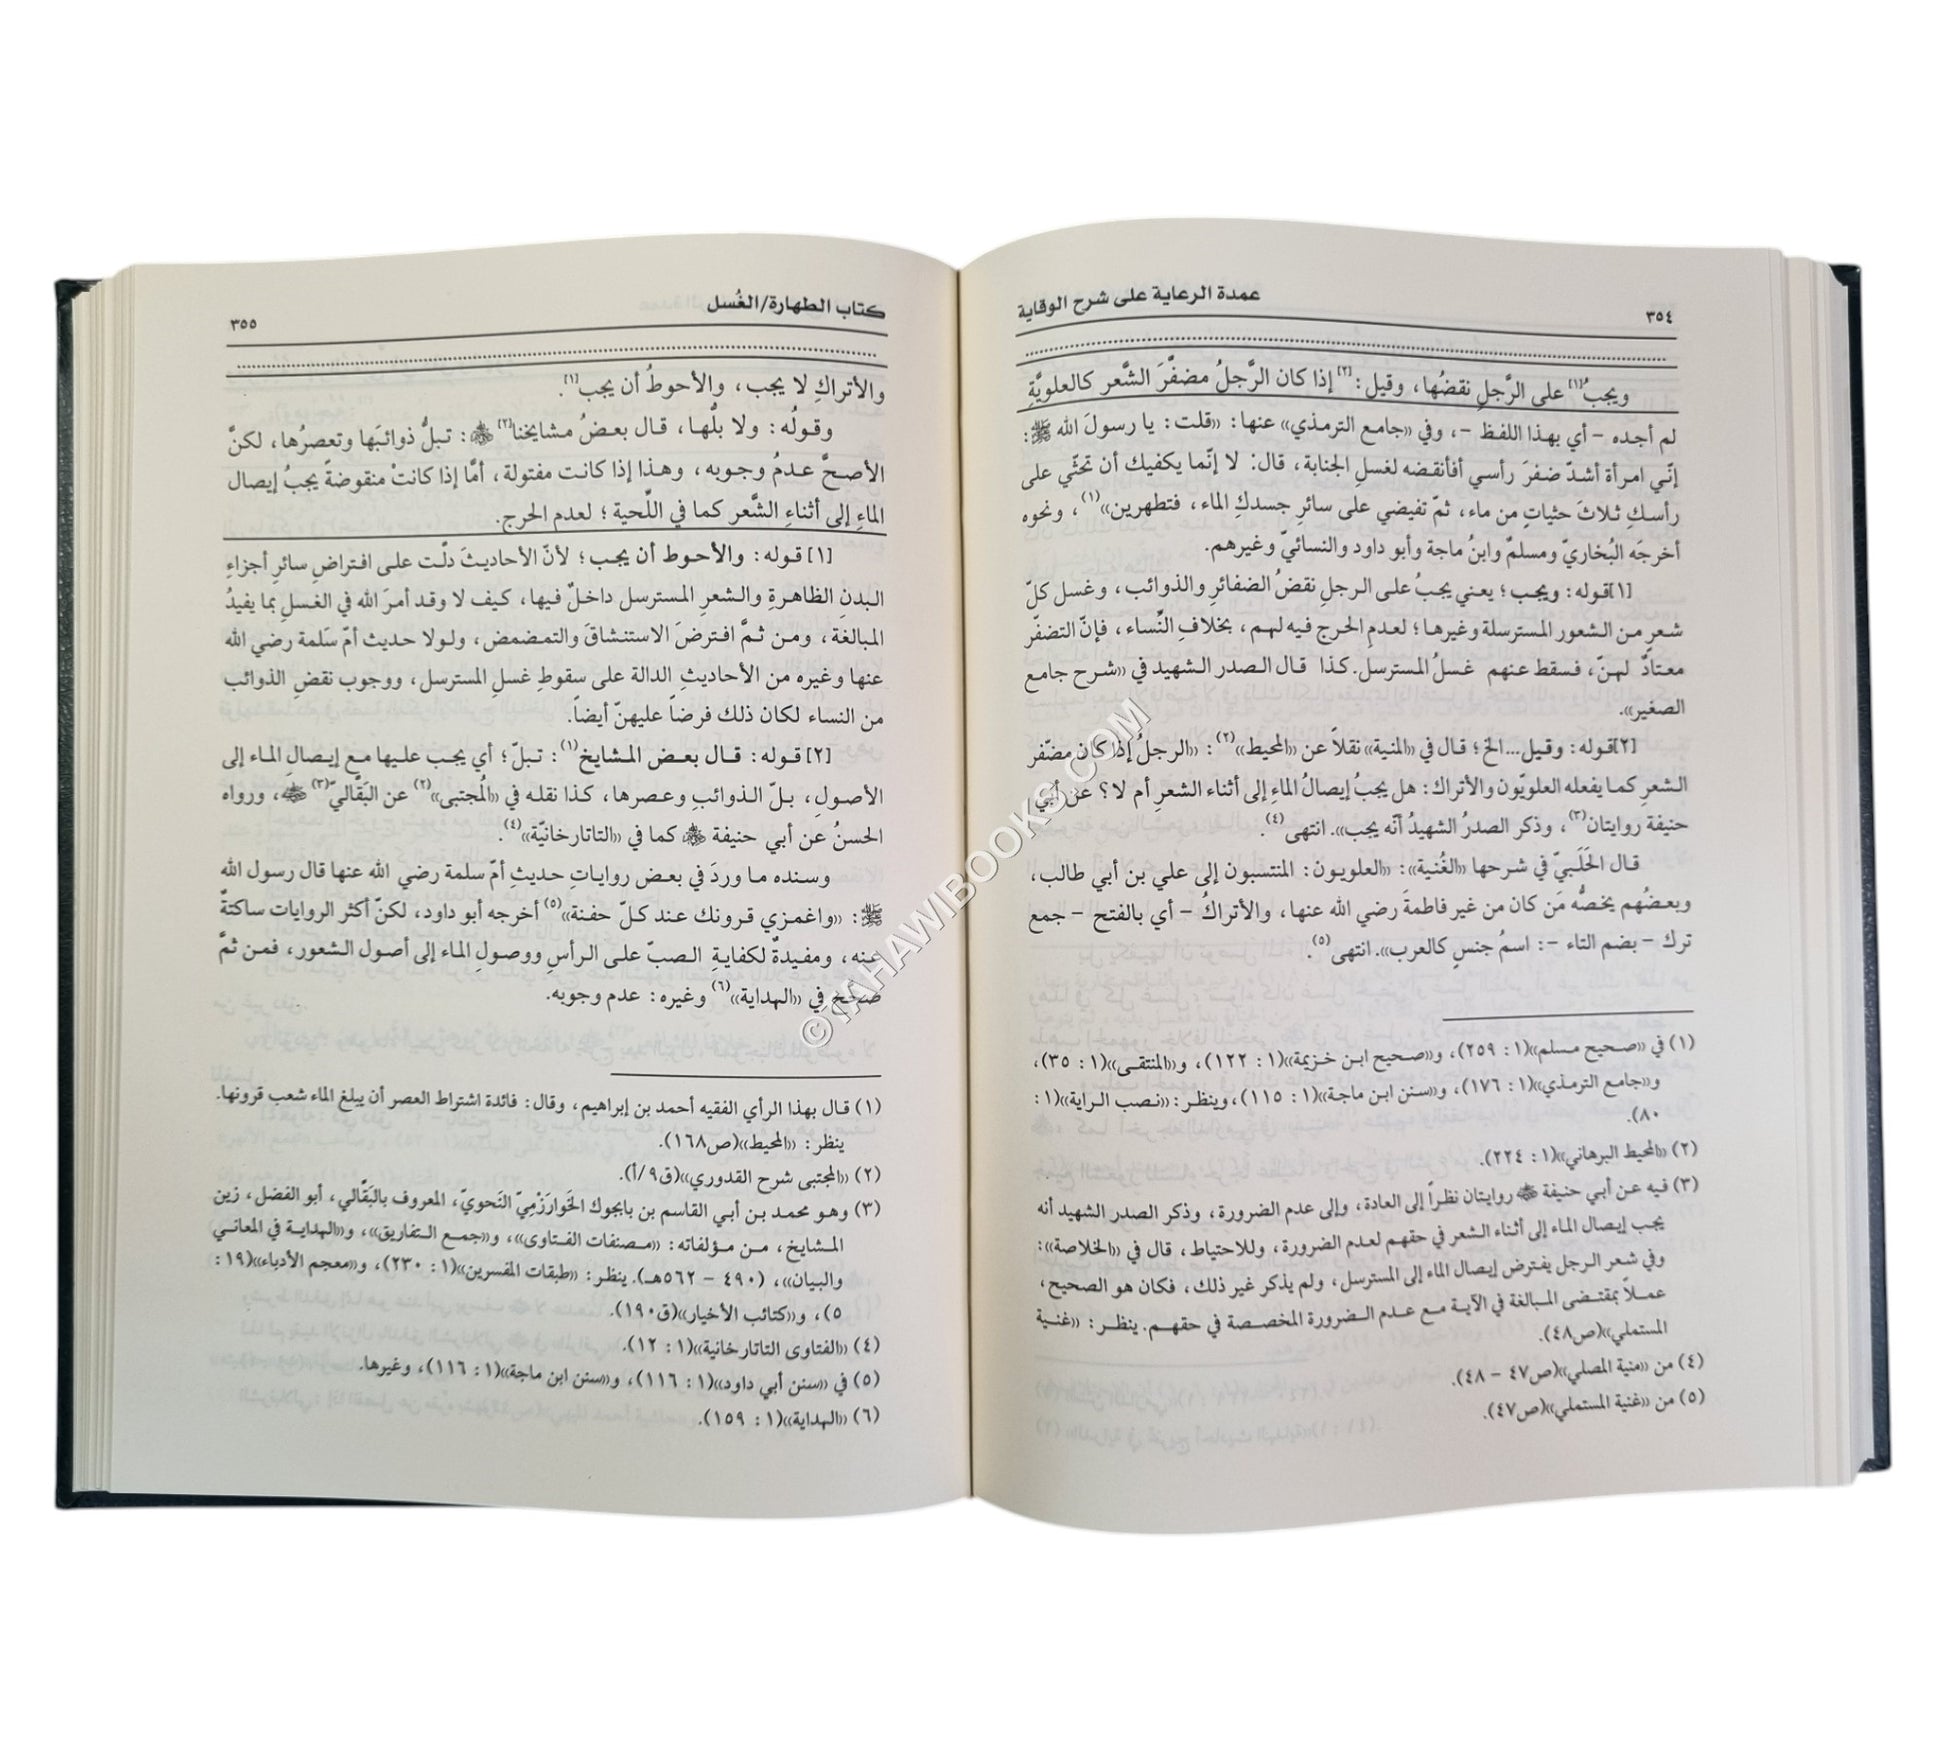 ٣٥٤
عمدة الرعاية على شرح الوقاية
ويجبُ[١] على الرَّجلِ نقضُها، وقيل:[٢] إذا كان الرَّجلُ مضفَّرَ الشَّعر كالعلويَّةِ
لم أجده – أي بهذا اللفظ –، وفي «جامع الترمذي» عنها: «قلت: يا رسولَ الله ﷺ:
إنّي امرأة أشدّ ضفرَ رأسي أفأنقضه لغسلِ الجنابة، قال: لا إنّما يكفيك أن تحثّي على
رأسكِ ثلاثَ حثياتٍ من ماء، ثمّ تفيضي على سائرِ جسدكِ الماء، فتطهرين»(١)، ونحوه
أخرجَه البُخاريّ ومسلمٌ وابنُ ماجة وأبو داود والنسائيّ وغيرهم.
[١]قوله: ويجب؛ يعني يجبُ على الرجلِ نقضُ الضفائرِ والذوائب، وغسل كلّ
شعرٍ من الشعور المسترسلة وغيرها؛ لعدمِ الحرج فيه لهم، بخلافِ النِّساء، فإنّ التضفّر
معتادٌ لهنّ، فسقط عنهم غسلُ المسترسل. كذا قال الصدر الشهيد في «شرح جامع
الصغير».
[٢]قوله: وقيل...الخ؛ قال في «المنية» نقلاً عن «المحيط»(٢): «الرجلُ إذا كان مضّفر
الشعرِ كما يفعله العلويّون والأتراك: هل يجبُ إيصالُ الماءِ إلى أثناء الشعرِ أم لا؟ عن أبي
حنيفة روايتان(٣)، وذكر الصدرُ الشهيدُ أنّه يجب». انتهى(٤).
قال الحَلَبيّ في شرحها «الغُنية»: «العلويون: المنتسبون إلى علي بن أبي طالب،
وبعضُهم يخصُّه مَن كان من غير فاطمةَ رضي الله عنها، والأتراكُ – أي بالفتح – جمع
ترك – بضم التاء –: اسمُ جنسٍ كالعرب». انتهى(٥).
(١) في «صحيح مسلم»(١: ٢٥٩)، و«صحيح ابن خزيمة»(١: ١٢٢)، و«المنتقى»(١: ٣٥)،
و«جامع الترمذي»(١: ١٧٦)، و«سنن ابن ماجة»(١: ١١٥)، وينظر: «نصب الراية»(١:
٨٠).
(٢) «المحيط البرهاني»(١: ٢٢٤).
(٣) فيه عن أبي حنيفة ﷺ روايتان نظراً إلى العادة، وإلى عدم الضرورة، وذكر الصدر الشهيد أنه
يجب إيصال الماء إلى أثناء الشعر في حقهم لعدم الضرورة، وللاحتياط، قال في «الخلاصة»:
وفي شعر الرجل يفترض إيصال الماء إلى المسترسل، ولم يذكر غير ذلك، فكان هو الصحيح،
عملاً بمقتضى المبالغة في الآية مع عدم الضرورة المخصصة في حقهم. ينظر: «غنية
المستملي»(ص٤٨).
(٤) من «منية المصلي»(ص٤٧ – ٤٨).
(٥) من «غنية المستملي»(ص٤٧).
كتاب الطهارة/الغُسل
٣٥٥
والأتراكِ لا يجب، والأحوطُ أن يجب[١].
وقولُه: ولا بلُّها، قال بعضُ مشايخنا[٢] ﷺ: تبلُّ ذوائبَها وتعصرُها، لكنَّ
الأصحَّ عدمُ وجوبه، وهذا إذا كانت مفتولة، أمَّا إذا كانتْ منقوضةً يجبُ إيصال
الماءِ إلى أثناءِ الشَّعر كما في اللِّحية؛ لعدم الحرج.
[١] قوله: والأحوط أن يجب؛ لأنّ الأحاديثَ دلّت على افتراضِ سائرِ أجزاءِ
البدنِ الظاهرةِ والشعرِ المسترسل داخلٌ فيها، كيف لا وقد أمرَ الله في الغسلِ بما يفيدُ
المبالغة، ومن ثمَّ افترضَ الاستنشاقَ والتمضمض، ولولا حديث أمّ سَلمة رضي الله
عنها وغيره من الأحاديثِ الدالة على سقوطِ غسلِ المسترسل، ووجوب نقضِ الذوائب
من النساء لكان ذلك فرضاً عليهنّ أيضاً.
[٢] قوله: قال بعض المشايخ(١): تبلّ؛ أي يجب عليها مع إيصالِ الماء إلى
الأصولِ، بلّ الذوائبِ وعصرها، كذا نقله في «المُجتبى»(٢) عن البَقَّاليّ(٣) ﷺ، ورواه
الحسنُ عن أبي حنيفة ﷺ كما في «التاتارخانيّة»(٤).
وسنده ما وردَ في بعض رواياتِ حديثِ أمّ سلمة رضي الله عنها قال رسول الله
ﷺ: «واغمزي قرونك عند كلّ حفنة»(٥) أخرجه أبو داود، لكنّ أكثر الروايات ساكتةٌ
عنه، ومفيدةٌ لكفايةِ الصبّ على الرأسِ ووصولِ الماء إلى أصول الشعور، فمن ثمَّ
صحّحَ في «الهداية»(٦) وغيره: عدم وجوبه.
(١) قال بهذا الرأي الفقيه أحمد بن إبراهيم، وقال: فائدة اشتراط العصر أن يبلغ الماء شعب قرونها.
ينظر: «المحيط»(ص١٦٨).
(٢) «المجتبى شرح القدوري»(ق٩/أ).
(٣) وهو محمد بن أبي القاسم بن بابجوك الخَوارَزْميّ النَحويّ، المعروف بالبَقَّالي، أبو الفضل، زين
المشايخ، من مؤلفاته: «مصنفات الفتاوى»، و«جمع التفاريق»، و«الهداية في المعاني
والبيان»، (٤٩٠ – ٥٦٢هـ). ينظر: «طبقات المفسرين»(١: ٢٣٠)، و«معجم الأدباء»(١٩:
٥)، و«كتائب الأخيار»(ق١٩٠).
(٤) «الفتاوى التاتارخانية»(١: ١٢).
(٥) في «سنن أبي داود»(١: ١١٦)، و«سنن ابن ماجة»(١: ١١٦)، وغيرها.
(٦) «الهداية»(١: ١٥٩).
©TAHAWIBOOKS.COM